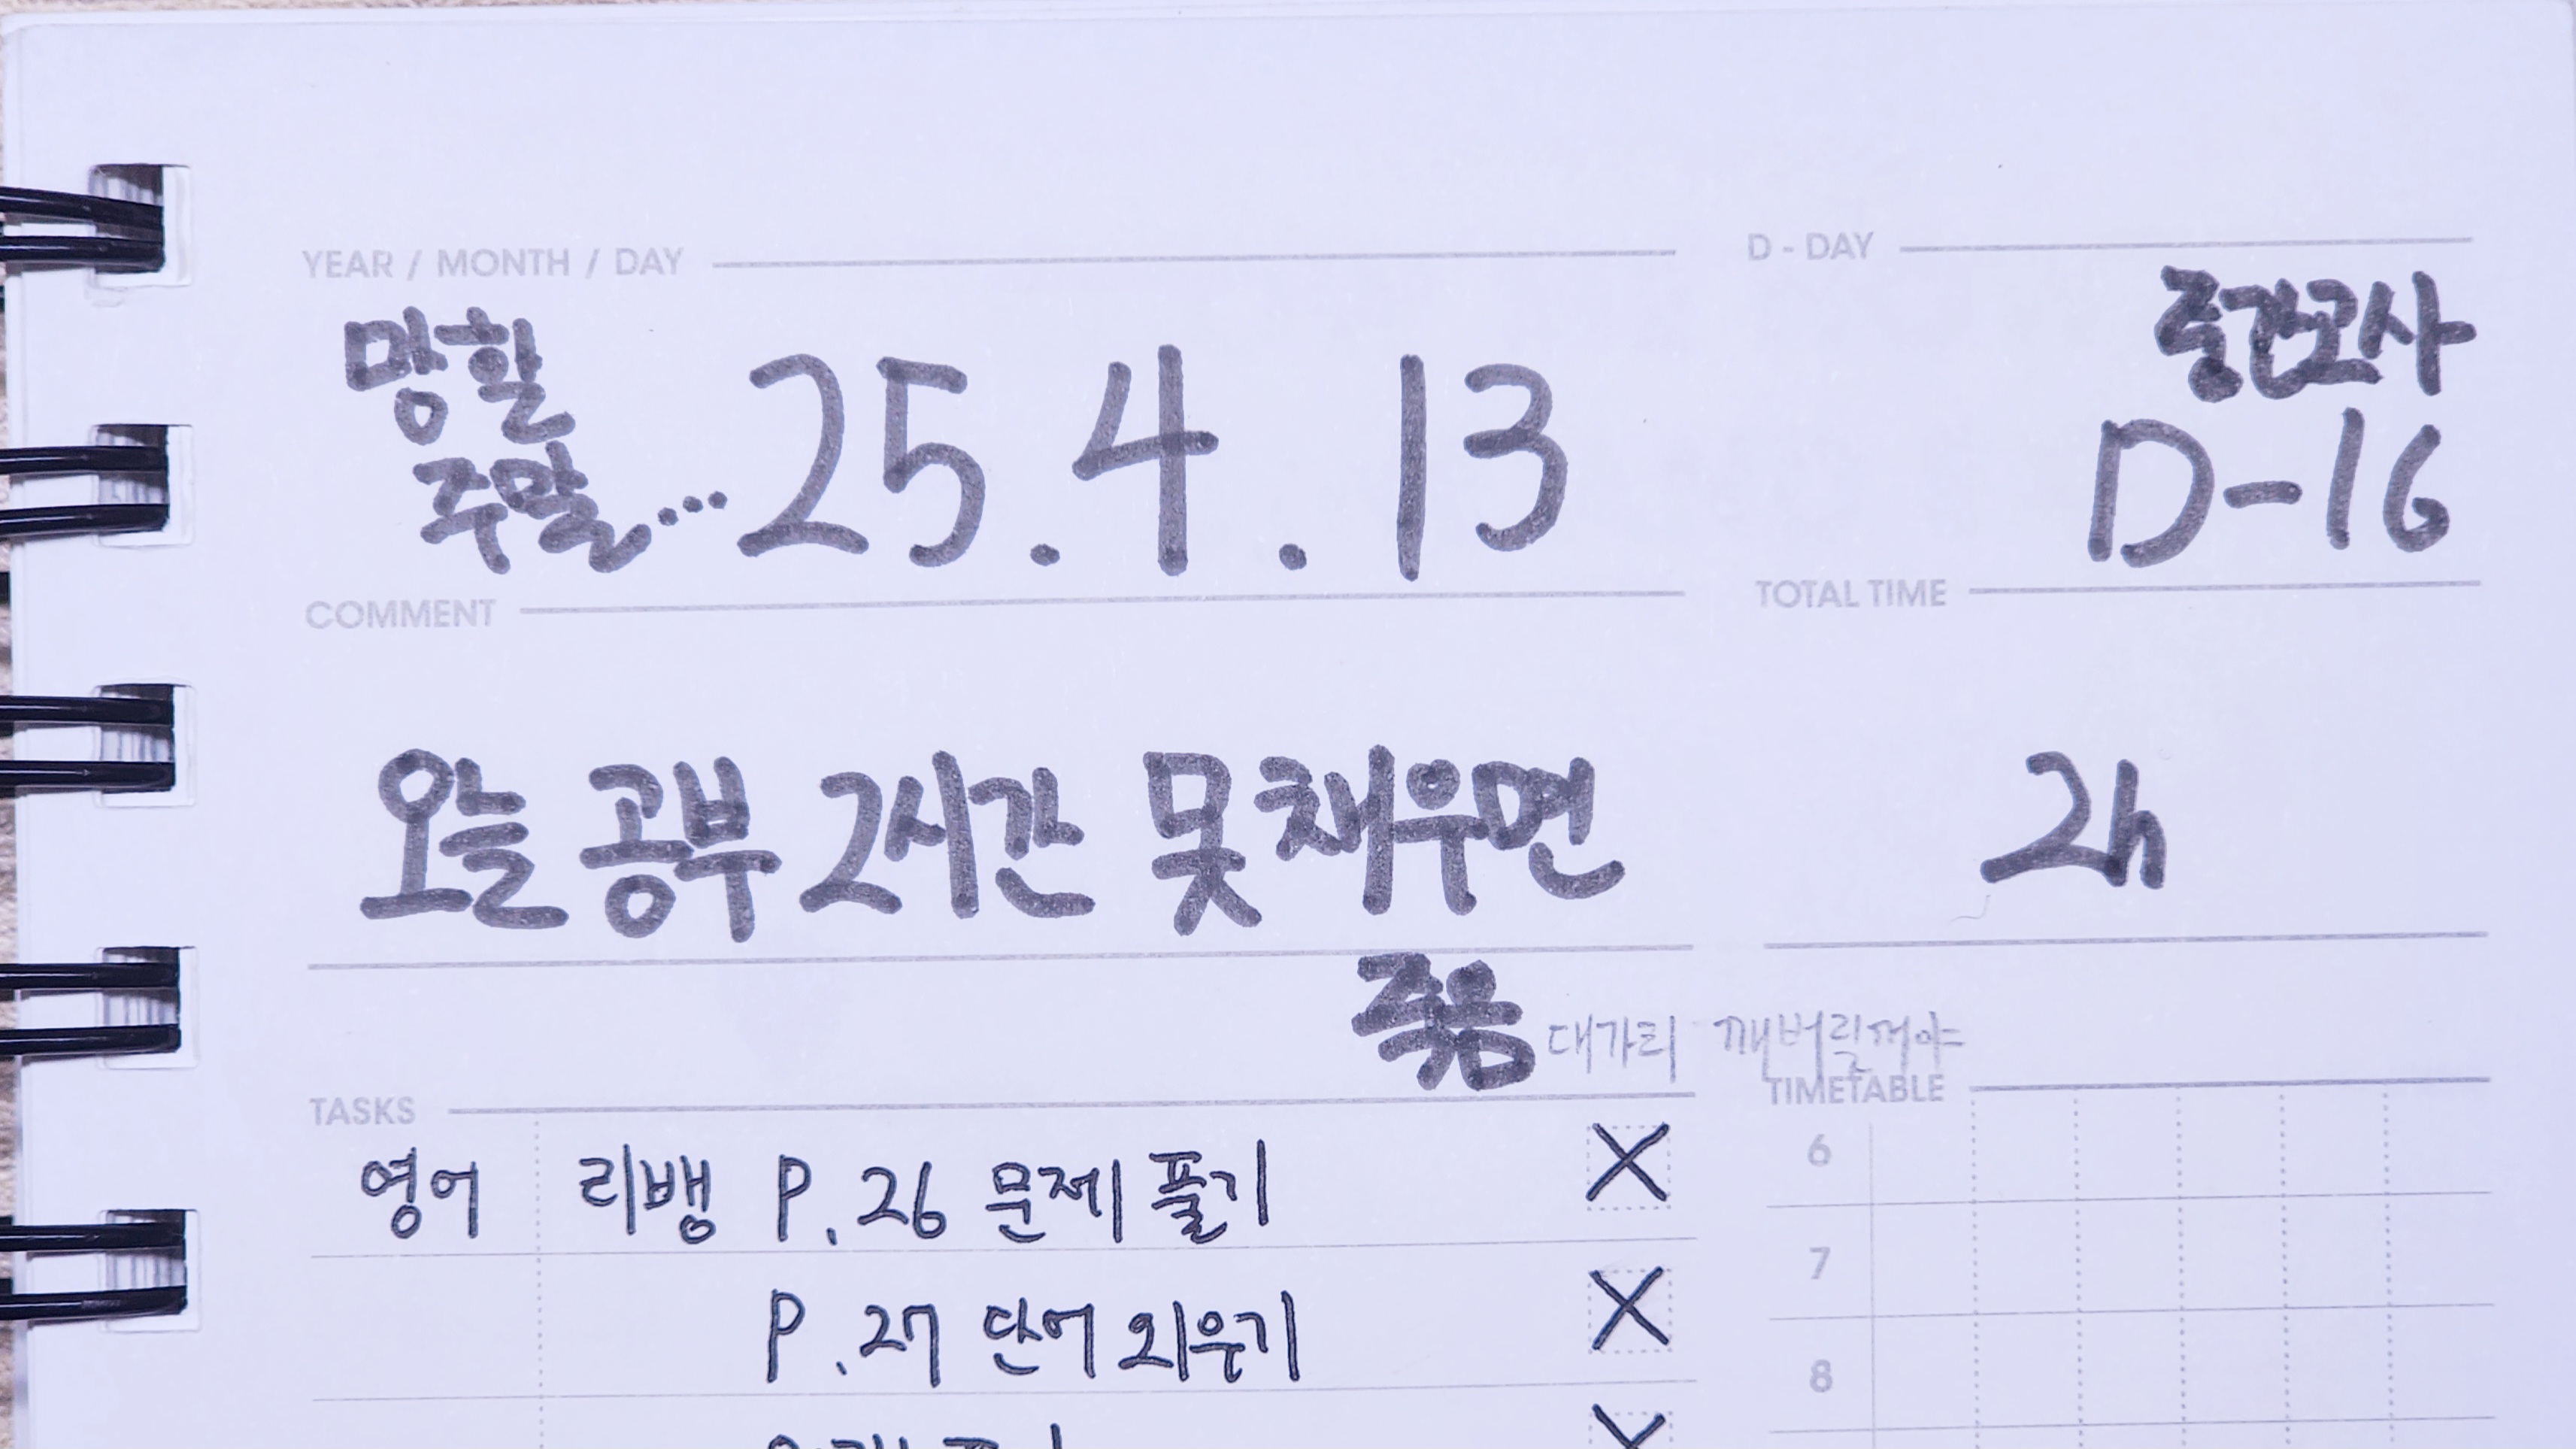 YEAR / MONTH / DAY
망할
주말... 25. 4. 13
D - DAY
중간고사
D-16
COMMENT
오늘 공부 2시간 못채우면
죽음 대가리 깨버릴꺼야
TOTAL TIME
2h
TASKS
영어 리뱅 P. 26 문제 풀기 X
P. 27 단어 외우기 X
TIMETABLE
6
7
8